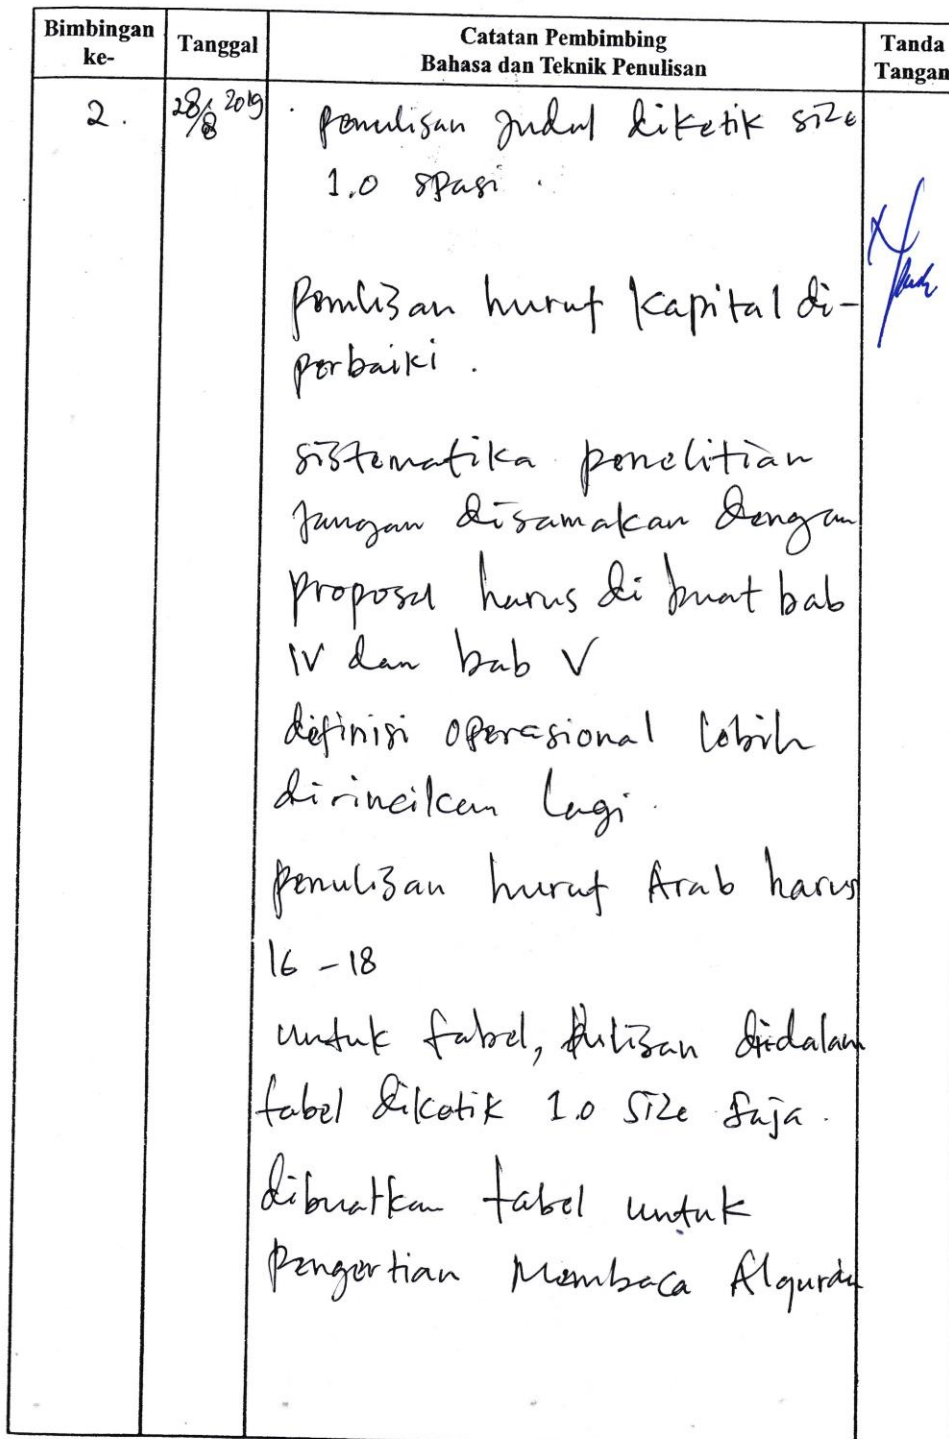 Bimbingan ke-
Tanggal
Catatan Pembimbing
Bahasa dan Teknik Penulisan
Tanda Tangan
2.
28/8 2019
penulisan judul diketik size
1.0 spasi.
penulisan huruf kapital di-
perbaiki.
sistematika penelitian
jangan disamakan dengan
proposal harus di buat bab
IV dan bab V
definisi operasional lebih
dirincikan lagi.
penulisan huruf Arab harus
16 - 18
untuk tabel, tulisan didalam
tabel diketik 1.0 size saja.
dibuatkan tabel untuk
Pengertian Membaca Alquran